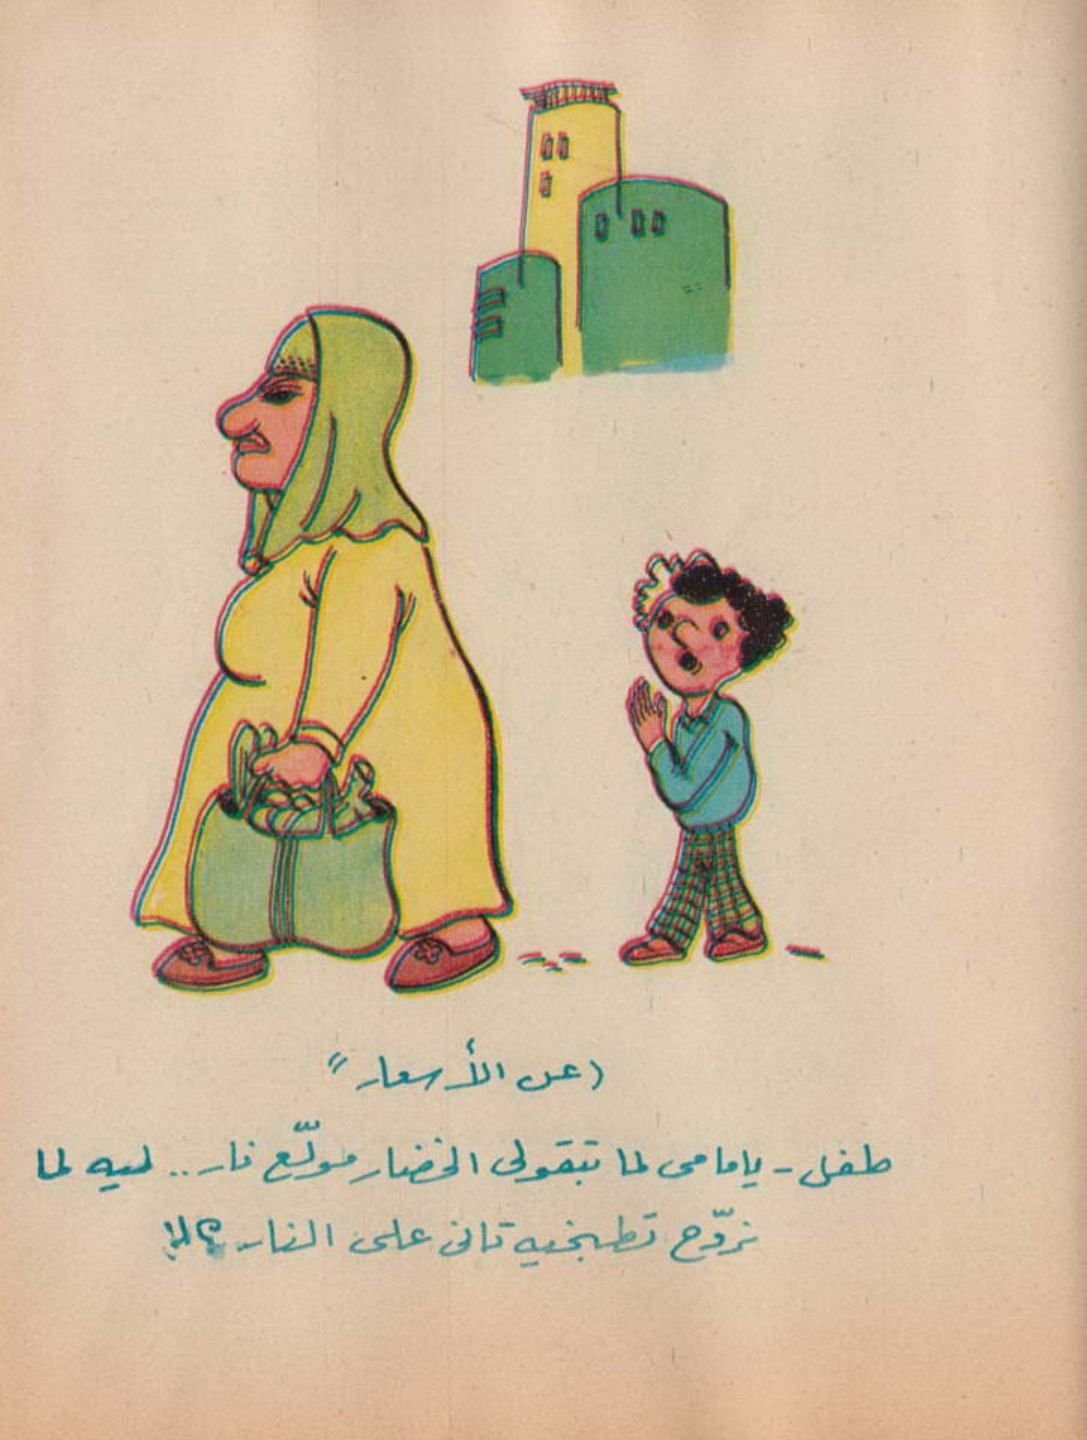 (عن الأسعار)
طفل - يامامى لما تبقولى الخضار مولّع نار .. ليه لما
نروّح تطبخيه تانى على النار؟!!